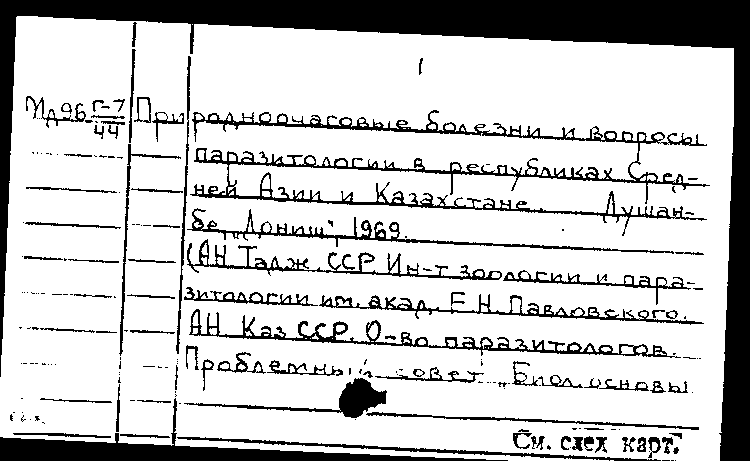 1
Мд96 Г-7/44 Природноочаговые болезни и вопросы
паразитологии в республиках Сред-
ней Азии и Казахстане. Душан-
бе, „Дониш“, 1969.
(АН Тадж. ССР. Ин-т зоологии и пара-
зитологии им. акад. Е.Н. Павловского.
АН Каз ССР. О-во паразитологов.
Проблемный совет „Биол. основы
См. след карт.